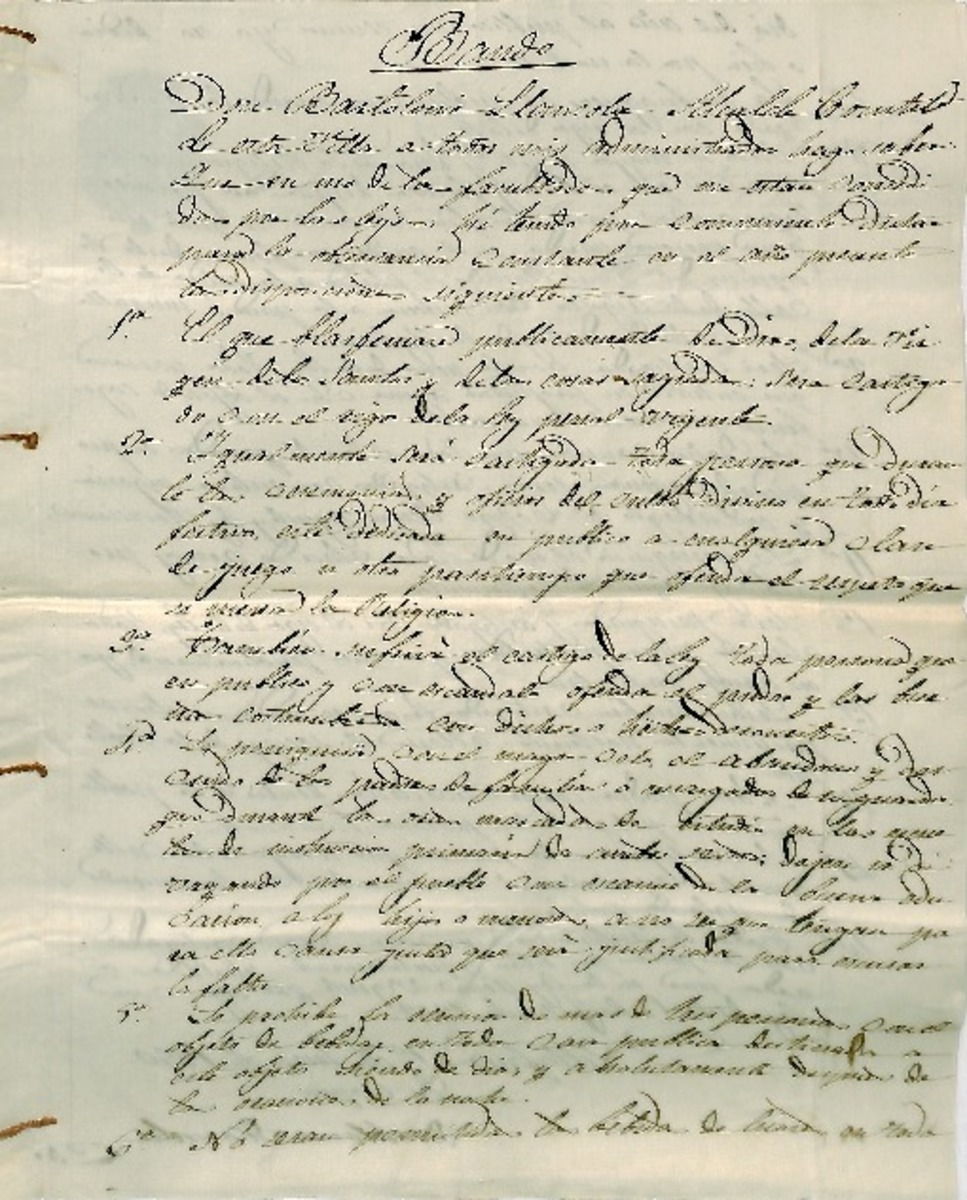 Bando
Don Bartolomé Llompla Alcalde Constal
de esta Villa a todos mis administrados hago saber:
Que en uso de las facultades que me estan concedi
das por las leyes, hé tenido por conveniente dictar
para la observancia constante en el año presente
las disposiciones siguientes
1ª El que blasfemare publicamente de Dios, de la Vir
gen de los Santos y de las cosas sagradas, sera castiga
do con el rigor de la ley penal vigente.
2ª Igualmente será castigada toda persona que duran
te las ceremonias y oficios del culto divino en todo dia
festivo, esté dedicada en publico a cualquiera clase
de juego u otro pasatiempo que ofenda el respeto que
se merece la Religion.
3ª Tambien sufrirá el castigo de la ley toda persona que
en publico y con escandalo ofenda el pudor y las bue
nas costumbres con dichos o hechos deshonestos.
4ª Se perseguirá con el mayor celo el abandono y des
cuido de los padres de familia ó encargados de su guarda
que durante las oras marcadas de estudio en las escue
las de instruccion primaria de ambos sexos, dejen ir di
vagando por el pueblo con escarnio de la buena edu
cacion a los hijos o menores, a no ser que tengan pa
ra ello causa justa que será justificada para escusar
la falta.
5ª Se prohibe la reunion de mas de tres personas con el
objeto de bebidas en toda casa publica destinada a
este objeto siendo de dia, y absolutamente despues de
las oraciones de la noche.
6ª No seran permitidas las bebidas de licores en toda